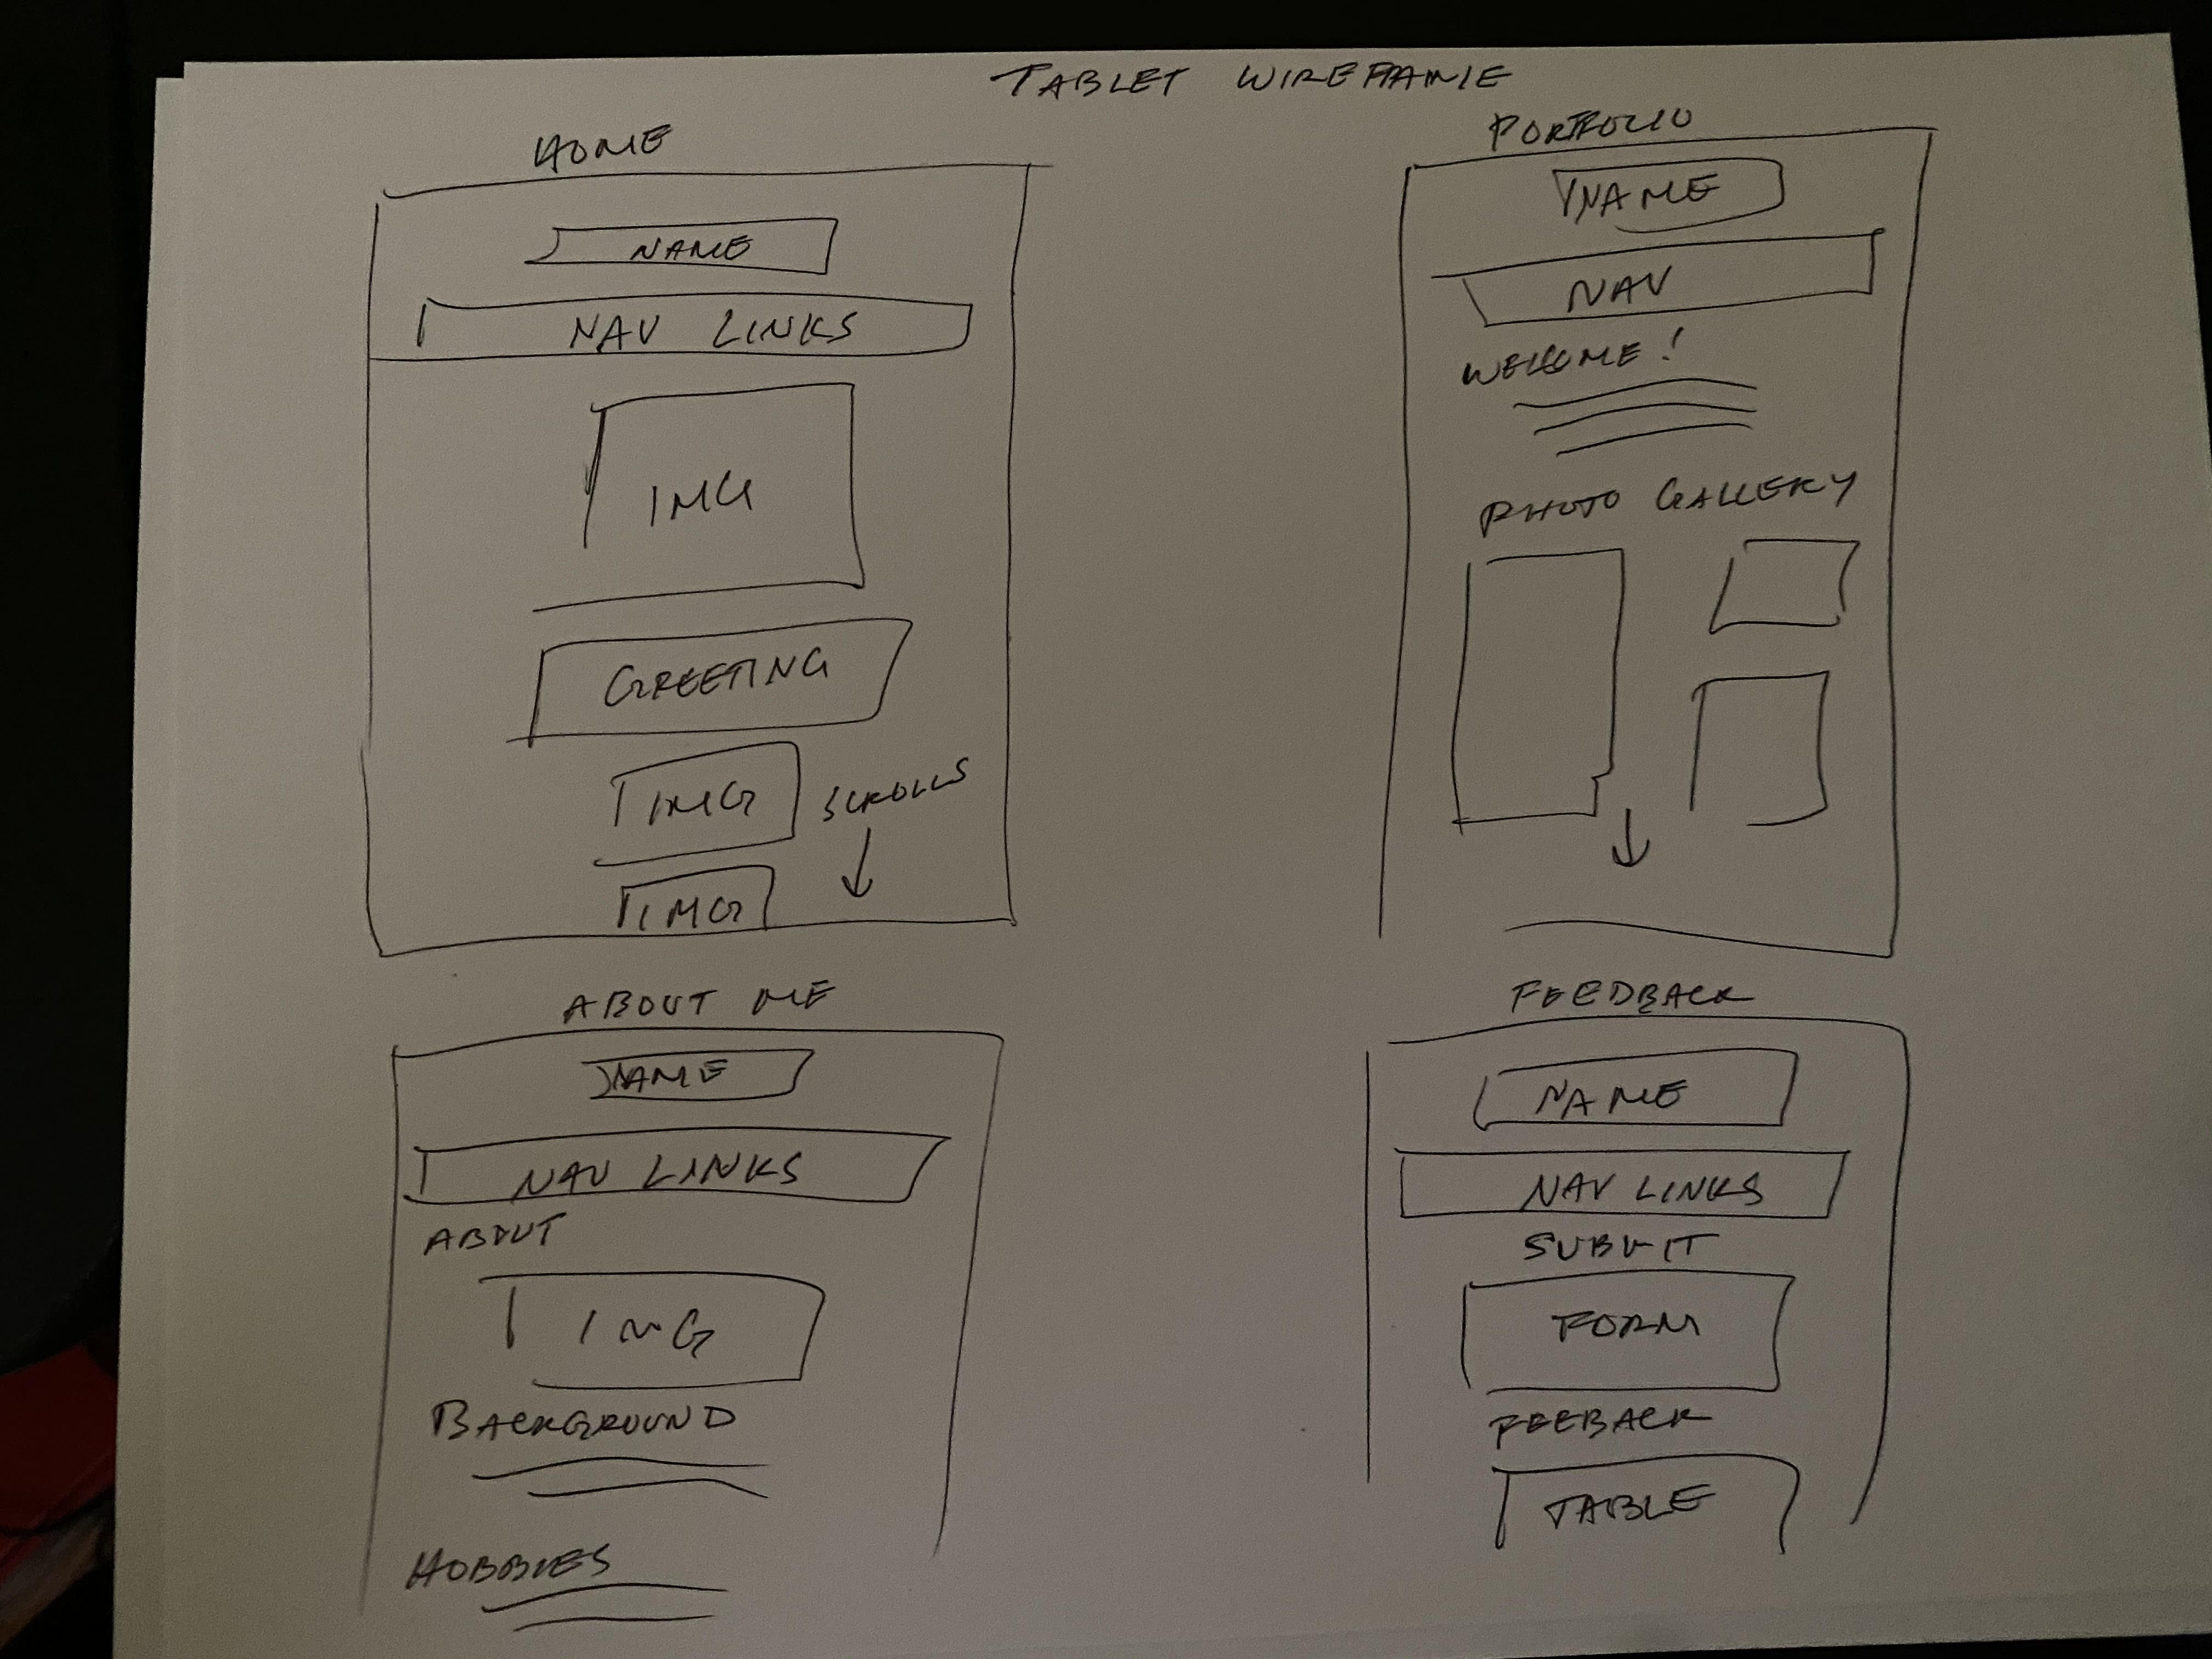 TABLET WIREFRAME
HOME
NAME
NAV LINKS
IMG
GREETING
IMG
SCROLLS
IMG
PORTFOLIO
NAME
NAV
WELCOME!
PHOTO GALLERY
ABOUT ME
NAME
NAV LINKS
ABOUT
IMG
BACKGROUND
HOBBIES
FEEDBACK
NAME
NAV LINKS
SUBMIT
FORM
FEEBACK
TABLE